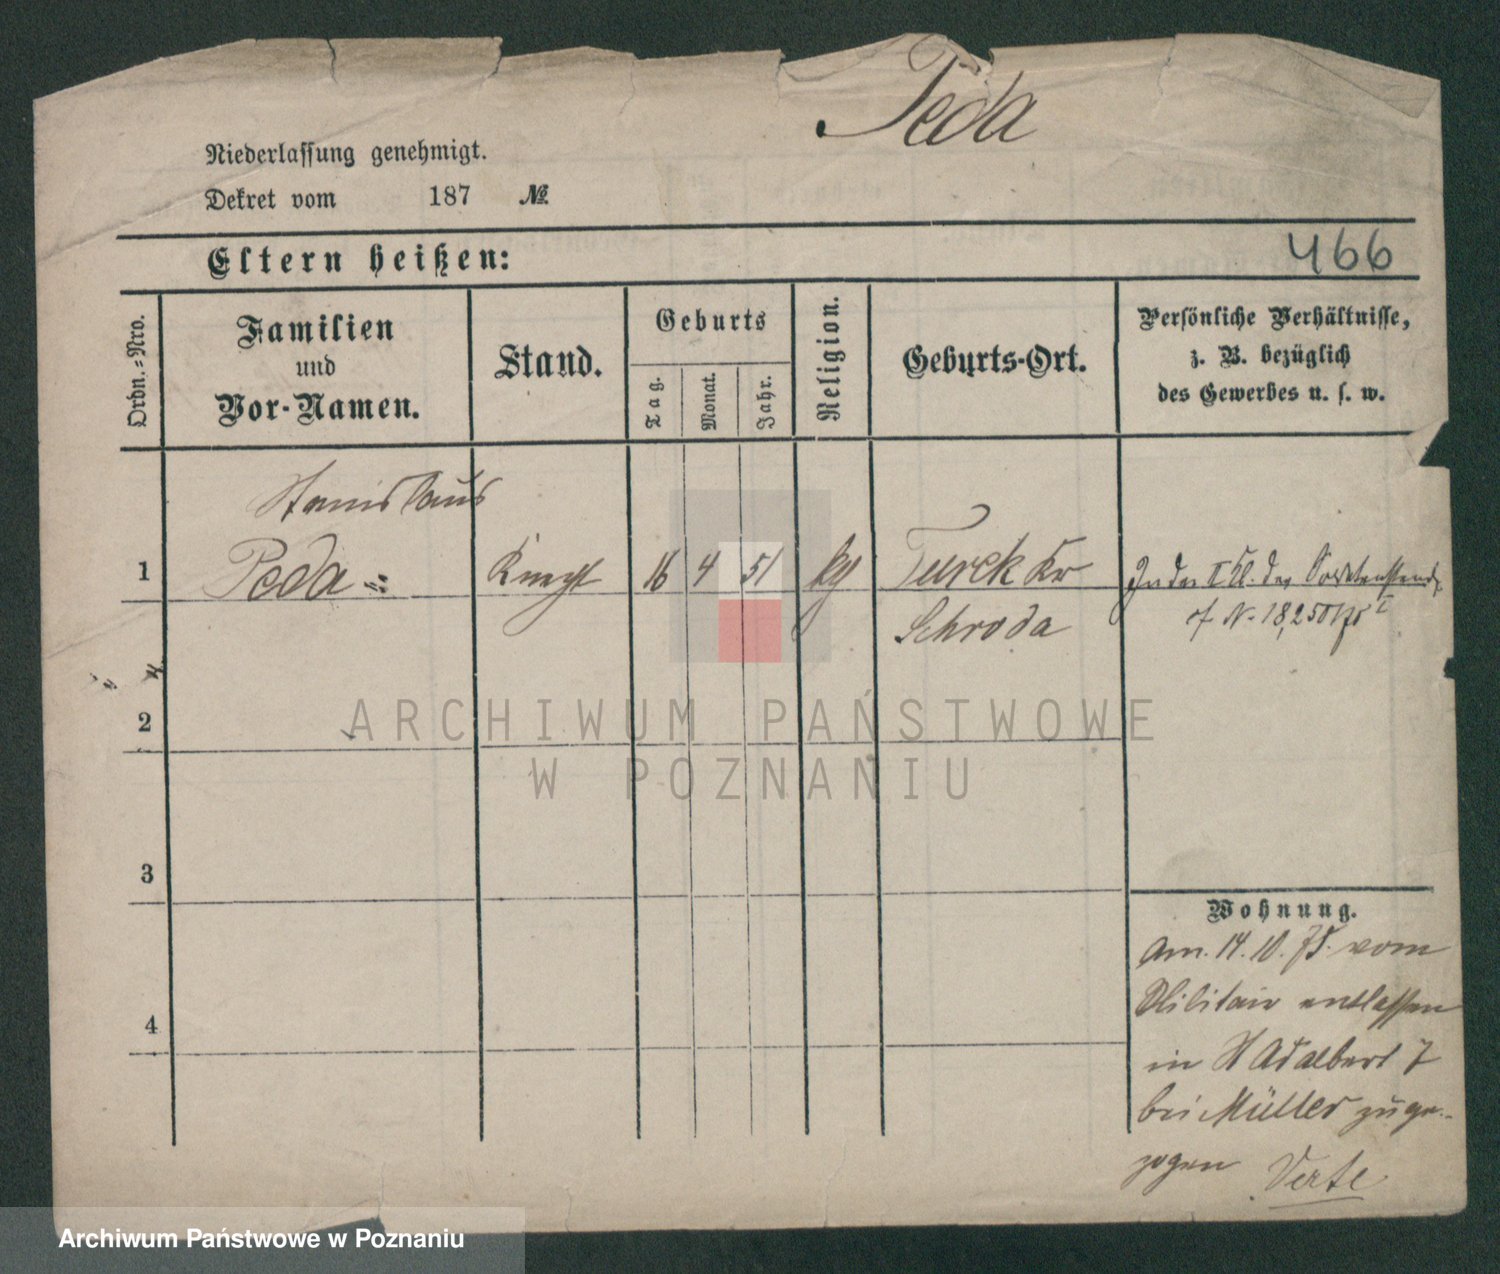 Peda
Niederlassung genehmigt.
Dekret vom 187 №
Eltern heißen:
466
Ordn.=Nro.
Familien
und
Vor-Namen.
Stand.
Geburts
Tag.
Monat.
Jahr.
Religion.
Geburts-Ort.
Persönliche Verhältnisse,
z. B. bezüglich
des Gewerbes u. s. w.
Stanislaus
1 Peda Knecht 16 4 51 kg Turek Kr
Schroda
In der I Kl. der
N. 18,250
2
3
4
Wohnung.
Am. 14. 10. 75. vom
Militair entlassen
in St Adalbert 7
bei Müller zuge-
zogen Verte
ARCHIWUM PAŃSTWOWE
W POZNANIU
Archiwum Państwowe w Poznaniu